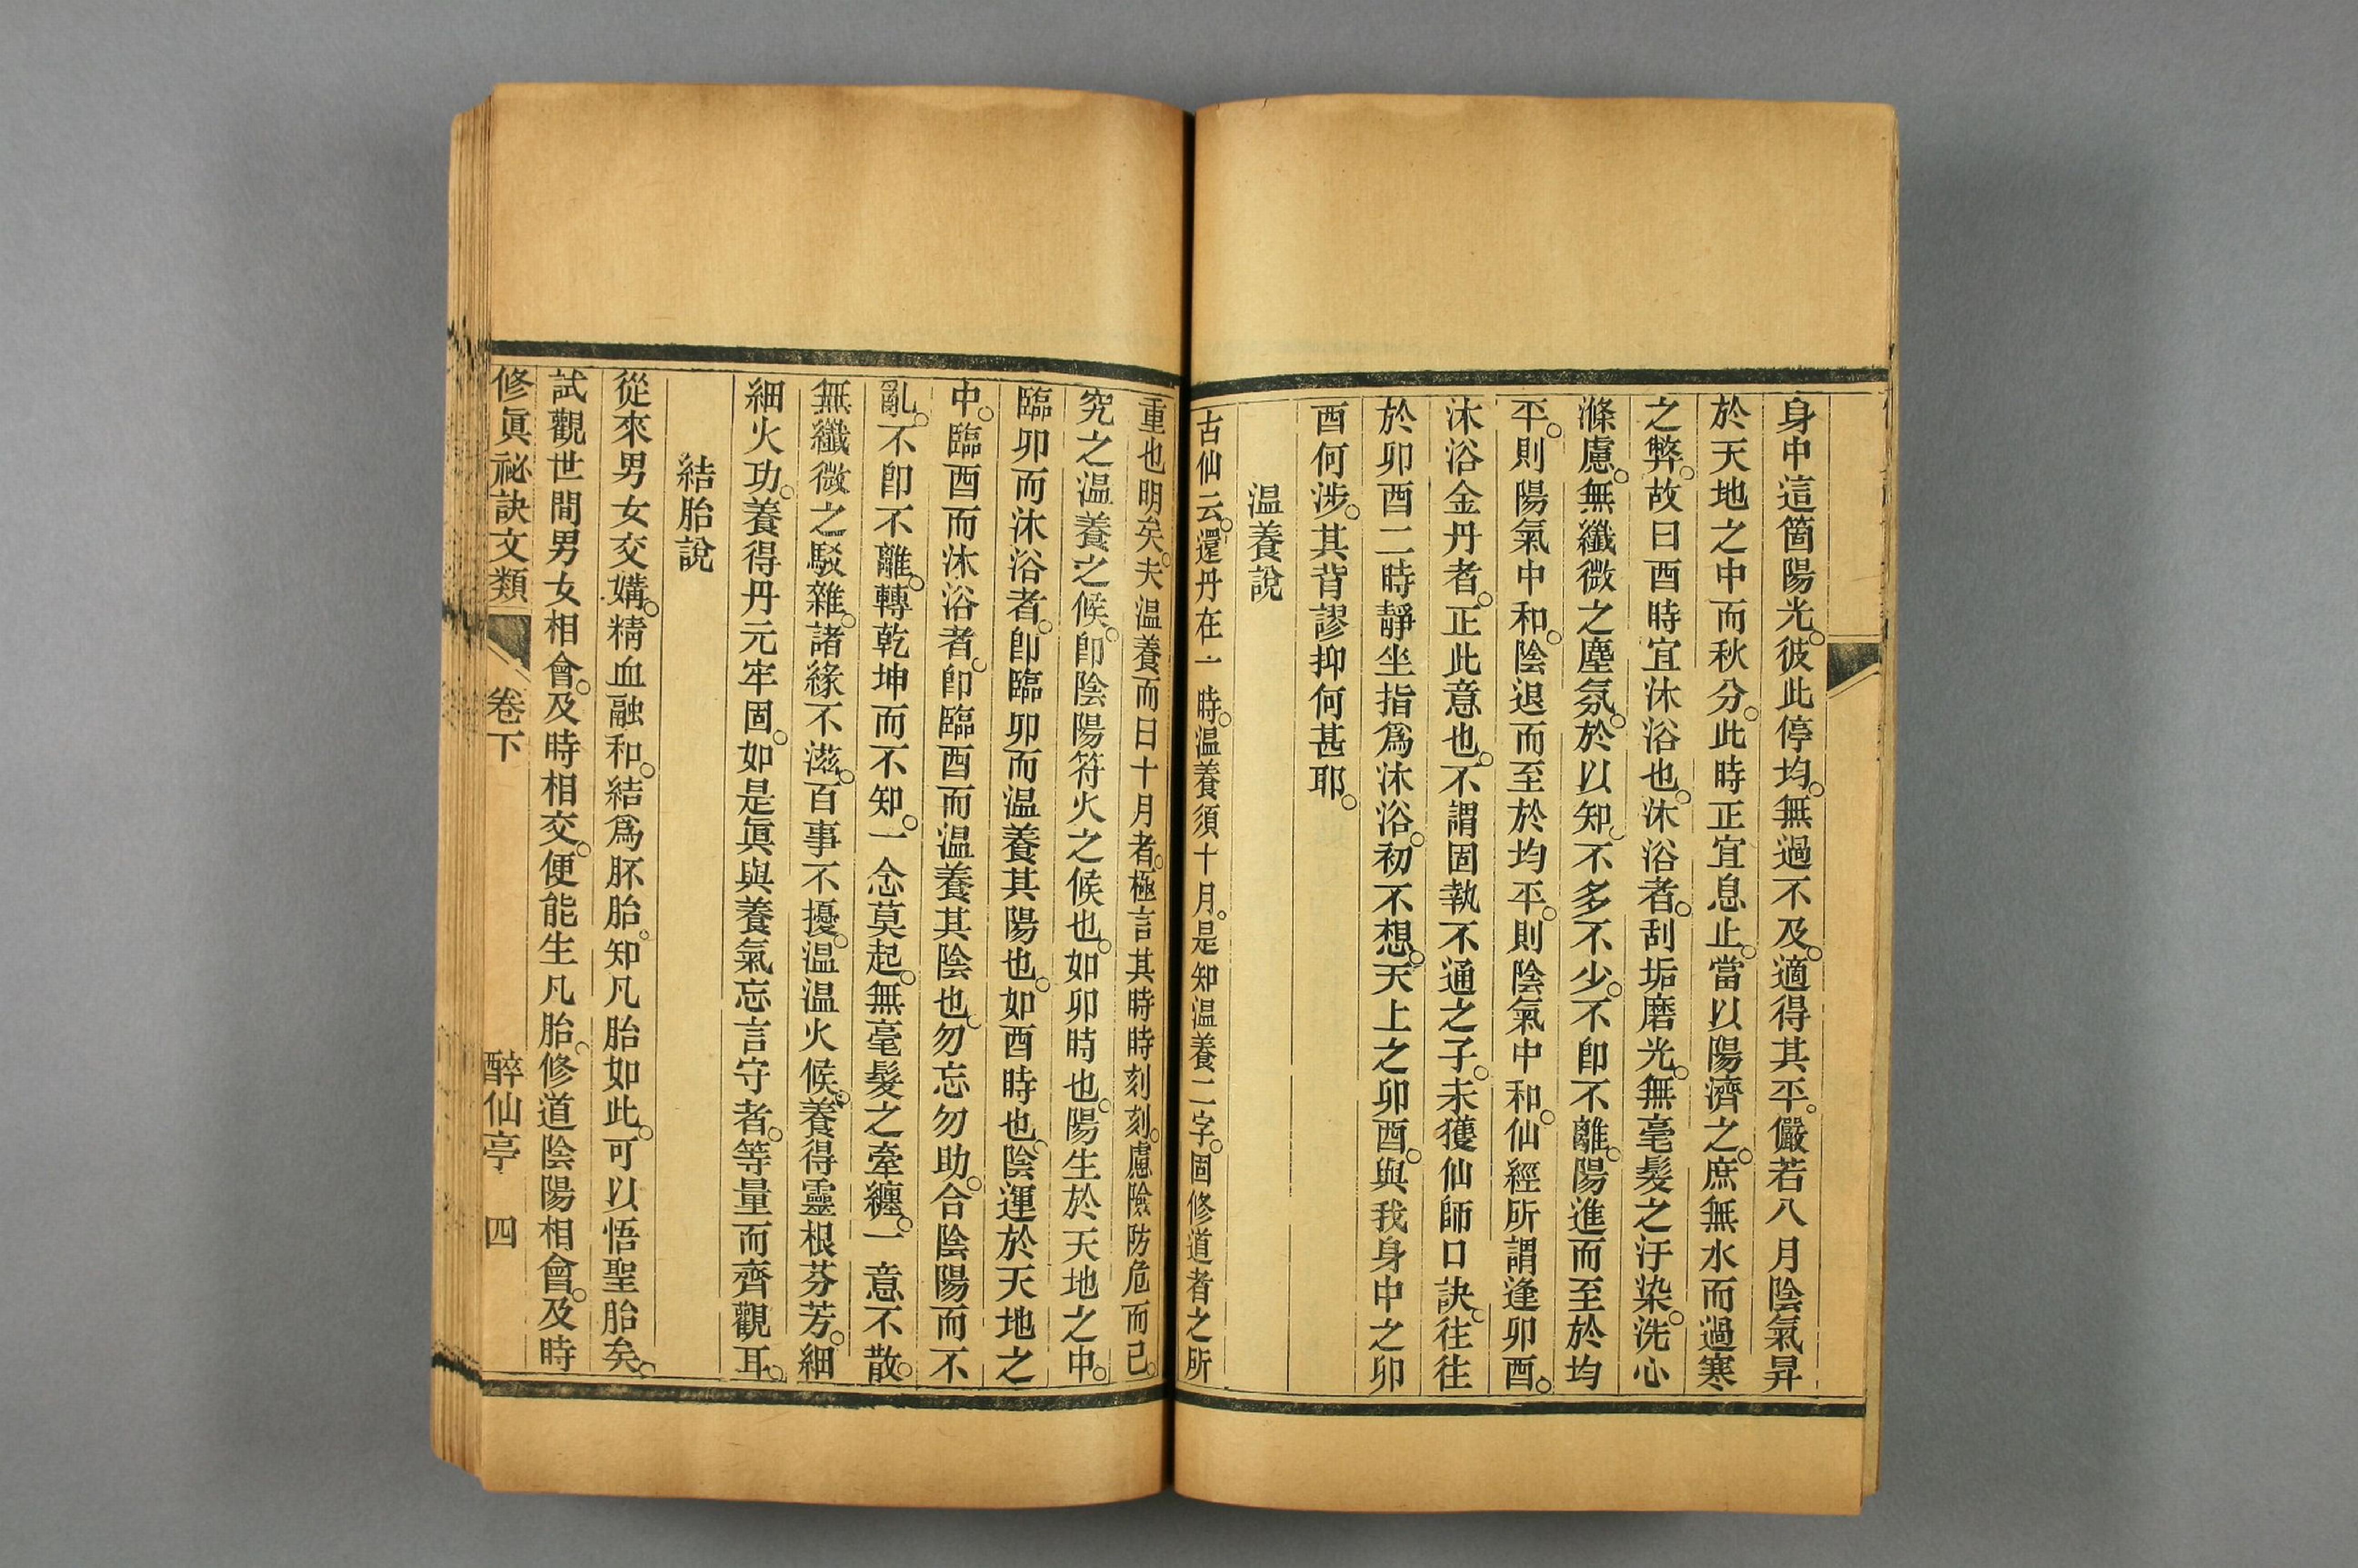 身中這箇陽光。彼此停均。無過不及。適得其平。儼若八月陰氣昇
於天地之中而秋分。此時正宜息止。當以陽濟之。庶無水而過寒
之弊。故曰酉時宜沐浴也。沐浴者。刮垢磨光。無毫髮之汙染。洗心
滌慮。無纖微之塵氛。於以知。不多不少。不卽不離。陽進而至於均
平。則陽氣中和。陰退而至於均平。則陰氣中和。仙經所謂逢卯酉。
沐浴金丹者。正此意也。不謂固執不通之子。未獲仙師口訣。往往
於卯酉二時靜坐指爲沐浴。初不想。天上之卯酉。與我身中之卯
酉何涉。其背謬抑何甚耶。
温養說
古仙云。還丹在一時。温養須十月。是知温養二字。固修道者之所
重也明矣。夫温養而曰十月者。極言其時時刻刻。慮險防危而已。
究之温養之候。卽陰陽符火之候也。如卯時也。陽生於天地之中。
臨卯而沐浴者。卽臨卯而温養其陽也。如酉時也。陰運於天地之
中。臨酉而沐浴者。卽臨酉而温養其陰也。勿忘勿助。合陰陽而不
亂。不卽不離。轉乾坤而不知。一念莫起。無毫髮之牽纏。一意不散。
無纖微之駁雜。諸緣不滋。百事不擾。温温火候。養得靈根芬芳。細
細火功。養得丹元牢固。如是眞與養氣忘言守者。等量而齊觀耳。
結胎說
從來男女交媾。精血融和。結爲胚胎。知凡胎如此。可以悟聖胎矣。
試觀世間男女相會。及時相交。便能生凡胎。修道陰陽相會。及時
修眞祕訣文類 卷下 醉仙亭 四